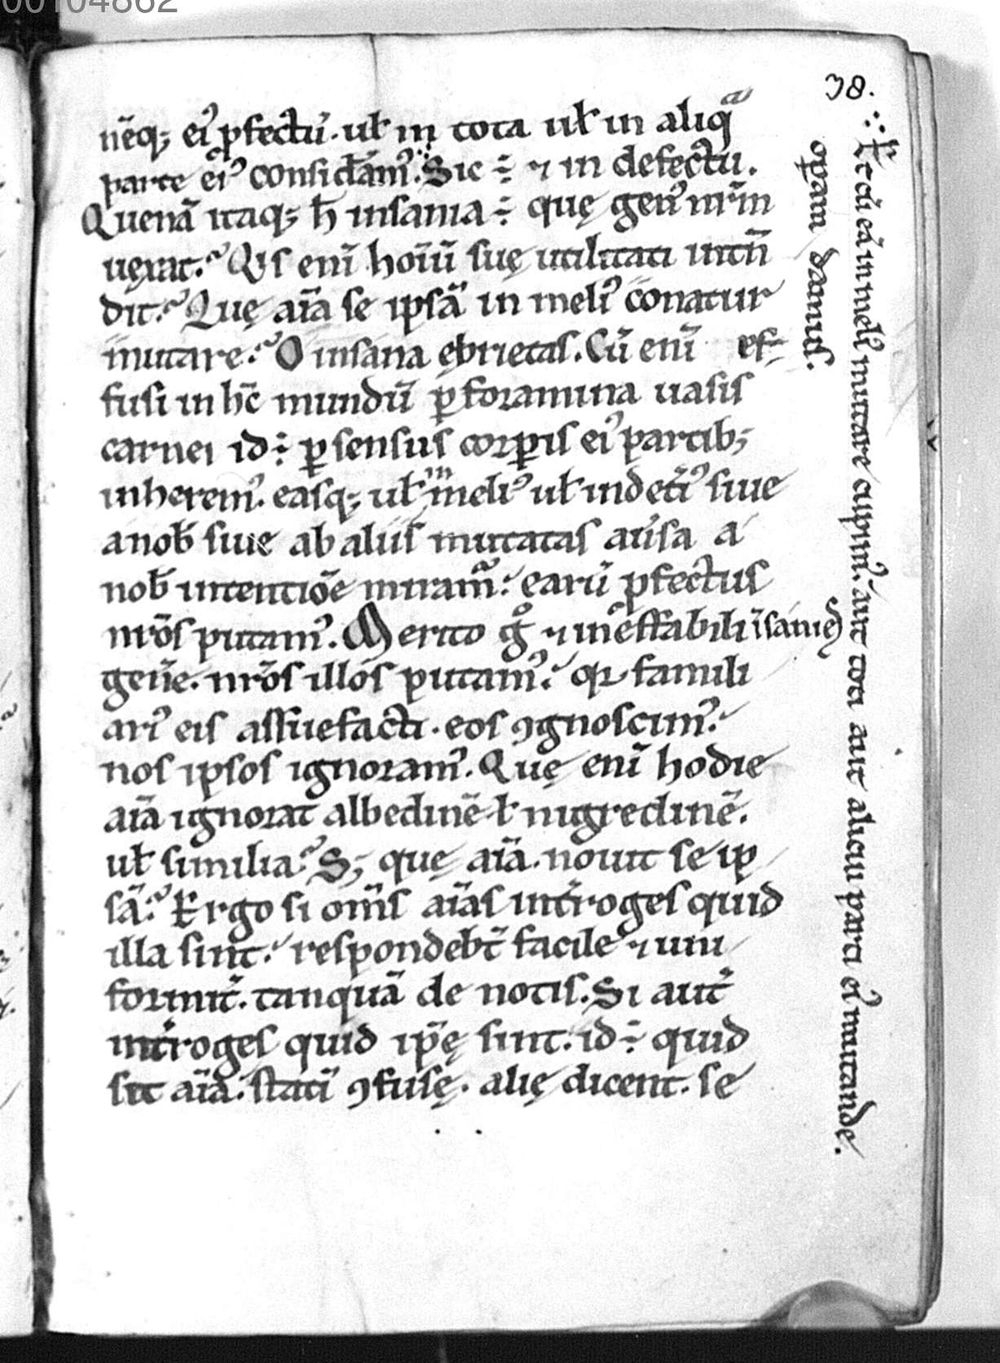 00104862
38.
nēq; ei᾽ ꝑfectū. ul̄ in tota ul̄ in aliqᵃ
parte ei᾽ considam᾽. Sic ÷ ⁊ in defectu.
Quenā itaq; h̄ insania ÷ quę gen᾽ nr̄m
uęxat? Qis enī hoīū suę utilitati intn̄
dit? Quę aīa se ipsā in meli᾽ conatur
mutare? O insana ębrietas. Cū enī ef
fusi in hc̄ mundū ꝑ foramina uasis
carnei id ÷ ꝑ sensus corꝑis ei᾽ partib;
inherem᾽. easq; ul̄ in meli᾽ ul̄ in deti᾽ siue
a nob̄ siue ab aliis mutatas auīsa a
nob̄ intentiōe miram᾽. earū ꝑfectus
nr̄os putam᾽. Merito gͦ ⁊ ineffabili īsanię
genēe. nr̄os illos putam᾽. qꝛ famili
ari᾽ eis assuefacti. eos ꝯgnoscim᾽.
nos ipsos ignoram᾽. Quę enī hodie
aīa ignorat albedinē ł nigredinē.
ul̄ similia? S; quę aīa. nouit se ip
sā? Ergo si om̄s aīas int̄roges quid
illa sint. respondebt̄ facile ⁊ uni
formit̄. tanquā de notis. Si aut̄
int̄roges quid ip̄ę sint. id ÷ quid
sit aīa. statī ꝯfusę. alię dicent. se
Et cū eā in meli᾽ mutare cupim᾽. aut toti aut alicui parti ei᾽ mutande.
oꝑam damus.